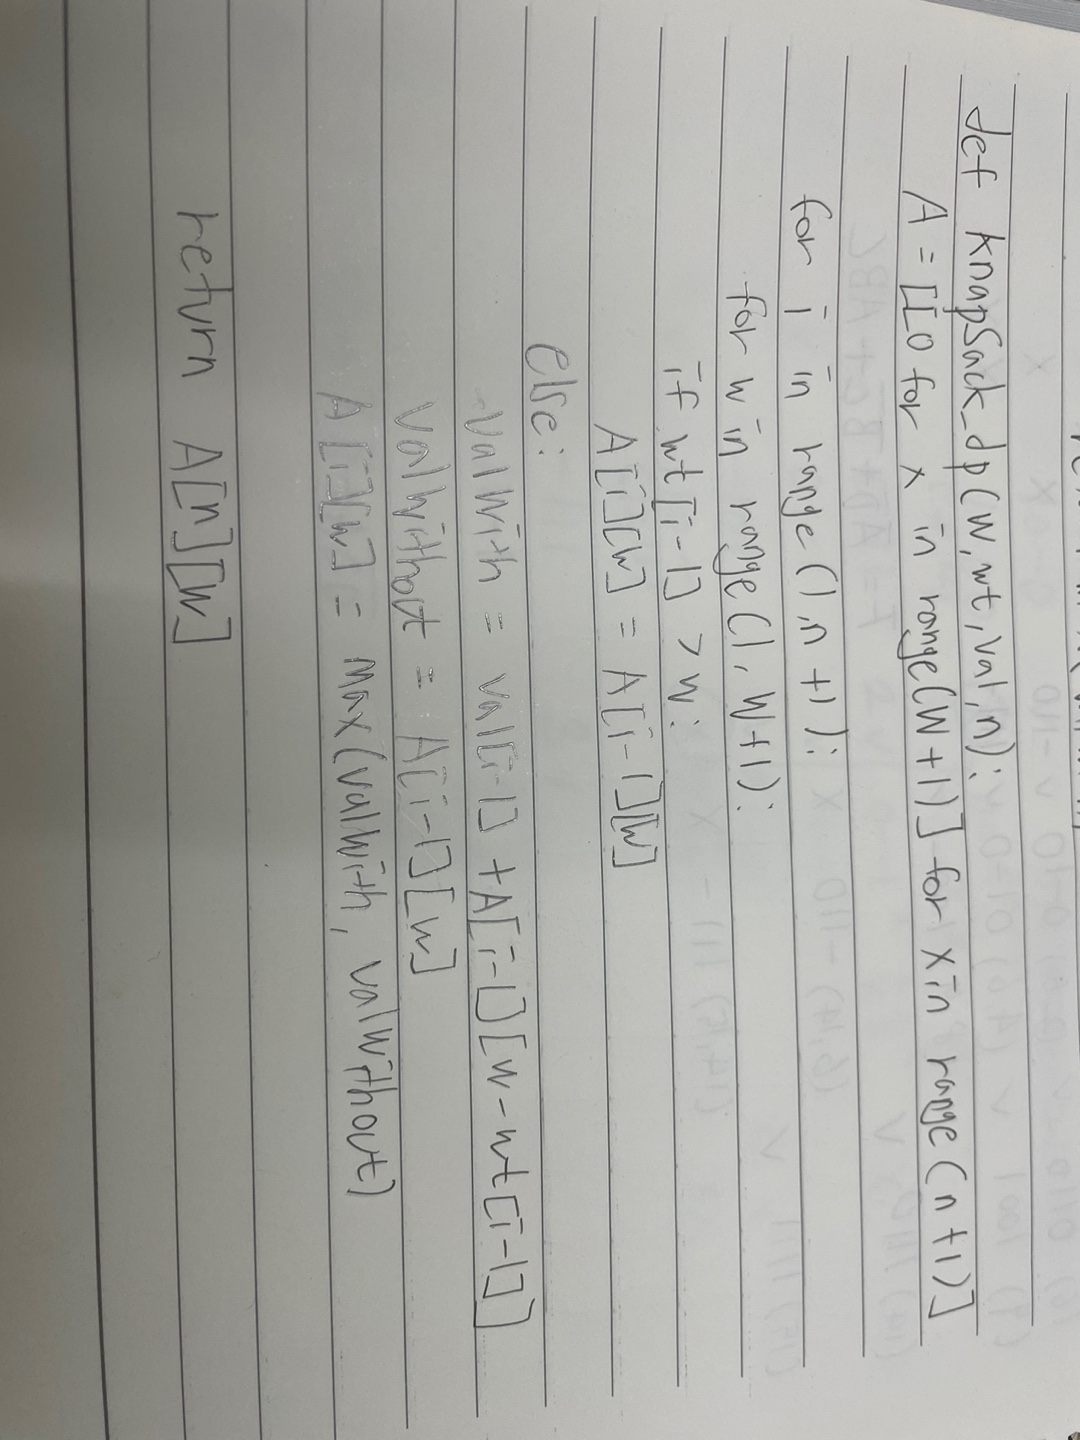 def knapSack_dp(W, wt, val, n):
A = [[0 for x in range(W+1)] for x in range(n+1)]
for i in range(1, n+1):
for w in range(1, W+1):
if wt[i-1] > w:
A[i][w] = A[i-1][w]
else:
valWith = val[i-1] + A[i-1][w-wt[i-1]]
valWithout = A[i-1][w]
A[i][w] = max(valWith, valWithout)
return A[n][w]